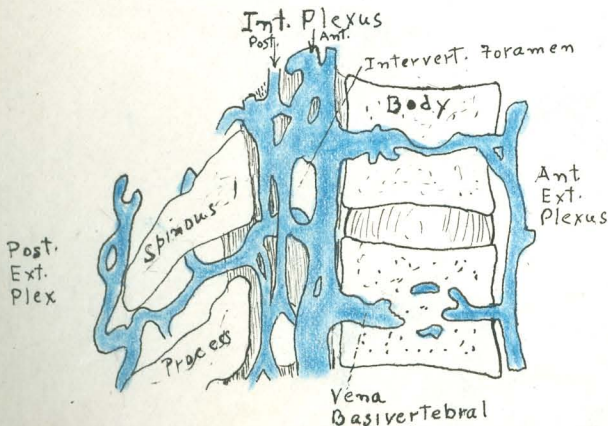 Int. Plexus
Post. Ant.
Intervert. Foramen
Body
Ant
Ext.
Plexus
Spinous
Post.
Ext.
Plex
Process
Vena
Basivertebral